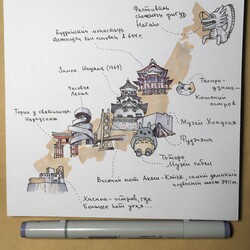 Фестиваль
снежных фигур
Нагано
Буддийский монастырь
был основан в 644 г.
Замок Инуяма (1469)
Часовня
Тории у святилища
Ицукусима
Татеро-
Музей Хонгсая
Фудзияма
Тоторо.
Музей Гибли
Висячий мост Акаси-Кайкё, самый длинный
подвесной мост 3911 м.
Хасима - остров, где
больше нет угля...